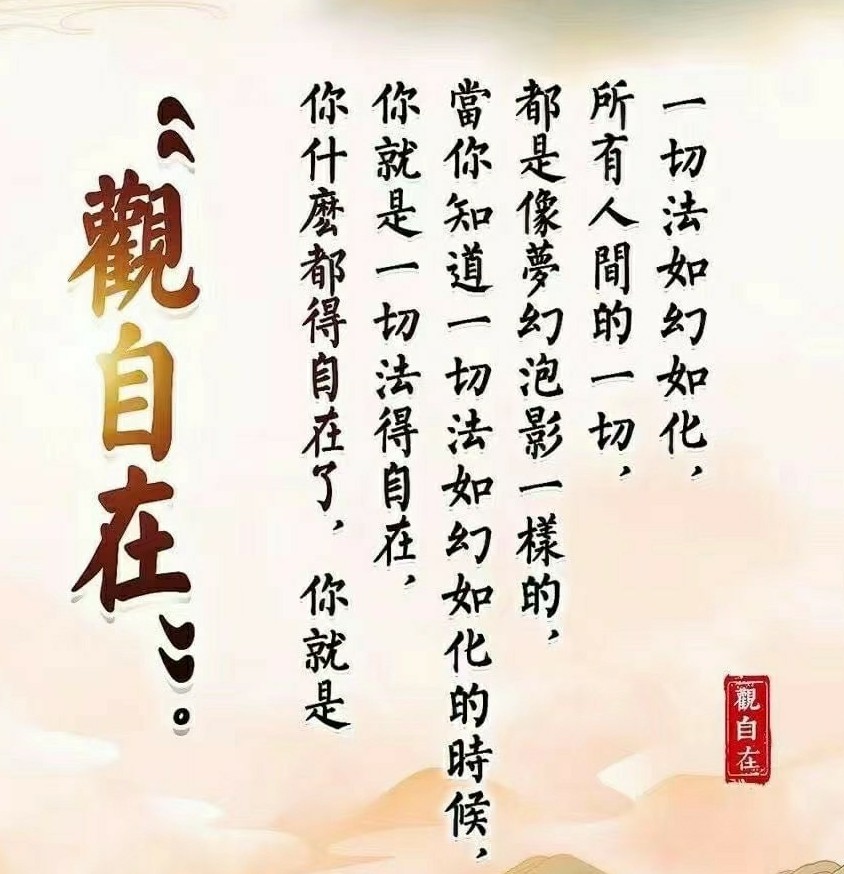 一切法如幻如化，
所有人間的一切，
都是像夢幻泡影一樣的，
當你知道一切法如幻如化的時候，
你就是一切法得自在，
你什麼都得自在了，你就是
“觀自在”。
觀自在